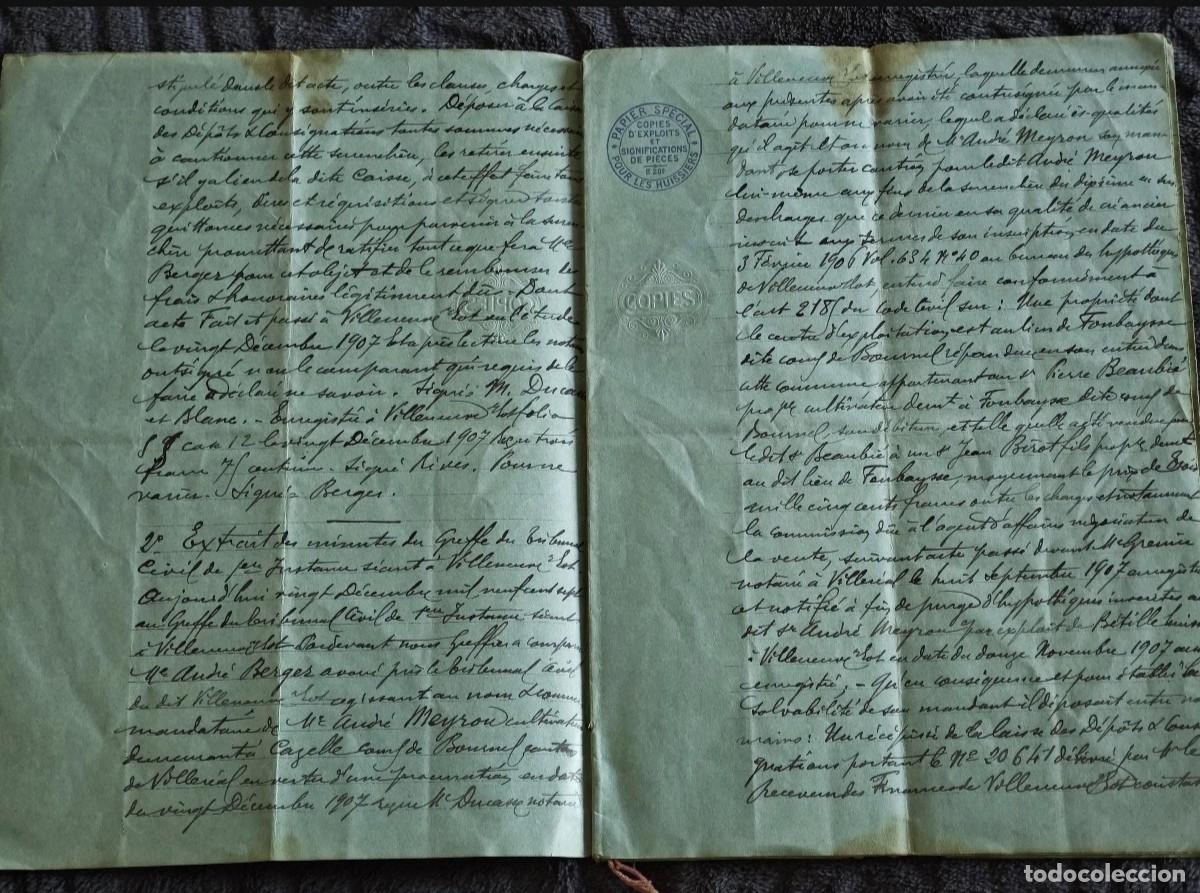 stipulé dans le dit acte, outre les clauses, charges et
conditions qui y sont insérées. Déposer à la Caisse
des Dépôts & Consignations toutes sommes nécessaires
à cautionner cette surenchère, les retirer ensuite
s'il y a lieu de la dite Caisse, à cet effet faire tous
exploits, dires et réquisitions et signer toutes
quittances nécessaires pour parvenir à la suren
chère promettant de ratifier tout ce que fera Me
Berger pour cet objet et de le rembourser des
frais & honoraires légitimement dûs. Dont
acte Fait et passé à Villeneuve s/Lot en l'étude
le vingt Décembre 1907 Et après lecture les notaires
ont signé non le comparant qui requis de le
faire a déclaré ne savoir. Signés M. Ducasse
et Blanc. - Enregistré à Villeneuve s/Lot folio
case 12 le vingt Décembre 1907 Reçu trois
francs 75 centimes. Signé Rives. Pour ne
varier. Signé Berger.
2° Extrait des minutes du Greffe du Tribunal
Civil de 1ère Instance séant à Villeneuve s/Lot.
Aujourd'hui vingt Décembre mil neuf cent sept
au Greffe du Tribunal Civil de 1ère Instance séant
à Villeneuve s/Lot Pardevant nous Greffier a comparu
Me André Berger avoué près le Tribunal Civil
du dit Villeneuve s/Lot agissant au nom & comme
mandataire de Mr André Meyrou cultivateur
demeurant à Cazelle comne de Bournel canton
de Villeréal en vertu d'une procuration en date
du vingt Décembre 1907 reçue Me Ducasse notaire
à Villeneuve s/Lot enregistrée, laquelle demeure annexée
aux présentes après avoir été contresignée par le man
dataire pour ne varier, lequel a déclaré ès-qualités
qu'il agit et au nom de Mr André Meyrou son man
dant se porter caution pour le dit André Meyrou
lui-même aux fins de la surenchère du dixième en sus
des charges que ce dernier en sa qualité de créancier
inscrit aux termes de son inscription en date du
3 Février 1906 Vol. 634 N° 40 au bureau des hypothèques
de Villeneuve s/Lot entend faire conformément à
l'art 2185 du Code Civil sur : Une propriété dont
le centre d'exploitation est au lieu de Fonbaysse
dite comne de Bournel répandue en son entier dans
cette commune appartenant au sr Pierre Beaubié
propre cultivateur demt à Fonbaysse dite comne de
Bournel, son débiteur, et telle qu'elle a été vendue par
le dit sr Beaubié à un sr Jean Birot fils propre demt
au dit lieu de Fonbaysse, moyennant le prix de trois
mille cinq cents francs outre les charges et notamment
la commission due à l'agent d'affaires négociateur de
la vente, suivant acte passé devant Me Grenier
notaire à Villeréal le huit Septembre 1907 enregistré
et notifié à fin de purge d'hypothèques inscrites au
dit sr André Meyrou par exploit de Bétille huissier
à Villeneuve s/Lot en date du douze Novembre 1907 aussi
enregistré. - Qu'en conséquence et pour établir la
solvabilité de son mandant il déposait entre nos
mains : Un récépissé de la Caisse des Dépôts & Consi
gnations portant le N° 20641 délivré par Mr le
Receveur des Finances de Villeneuve s/Lot constatant
PAPIER SPÉCIAL
COPIES
D'EXPLOITS
ET
SIGNIFICATIONS
DE PIÈCES
POUR LES HUISSIERS
COPIES
todocoleccion